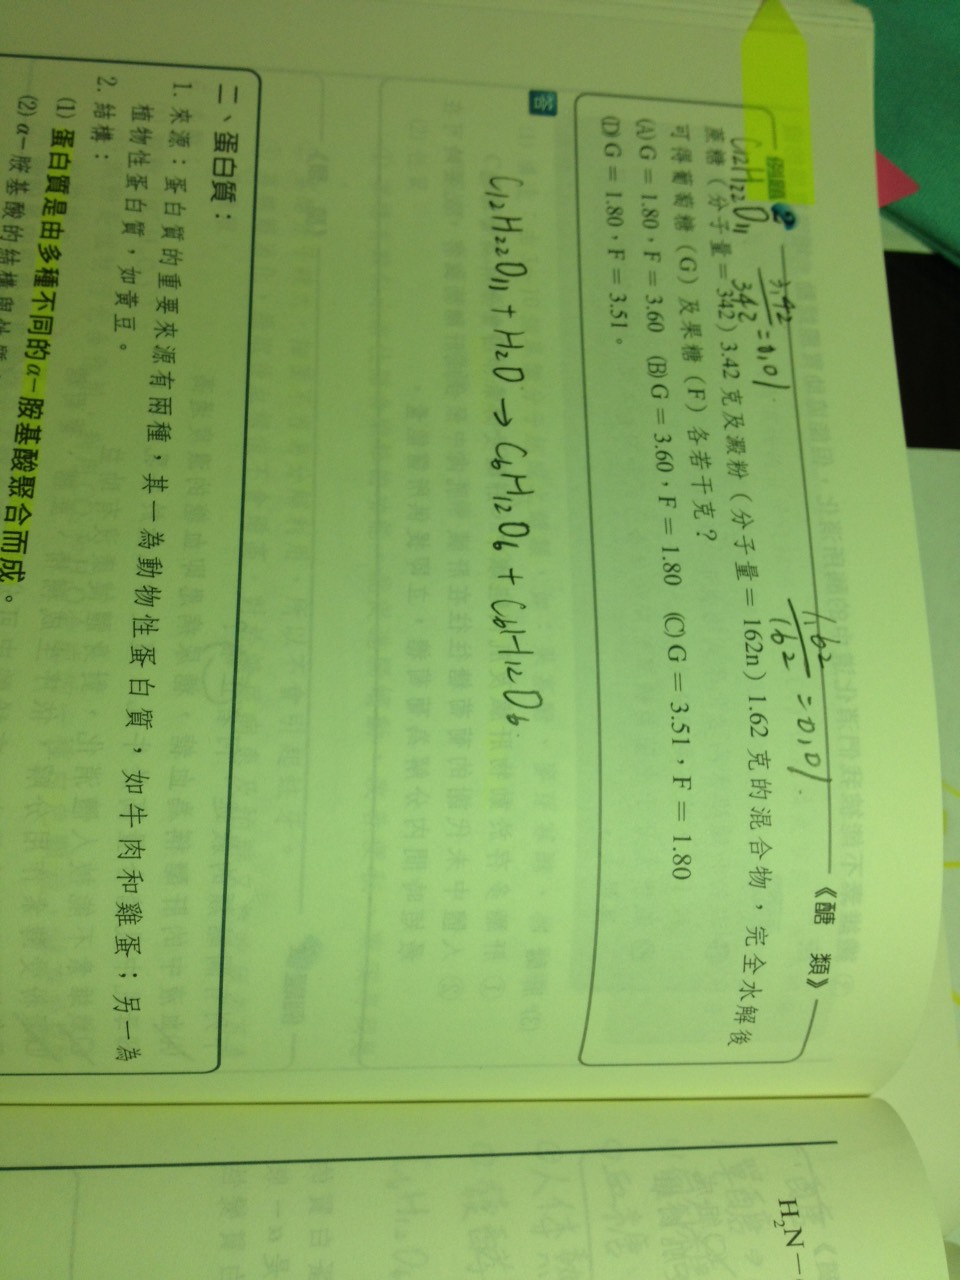 例題 2
《醣類》
C12H22O11
3.42/342 = 0.01
1.62/162 = 0.01
蔗糖（分子量＝342）3.42 克及澱粉（分子量＝162n）1.62 克的混合物，完全水解後
可得葡萄糖（G）及果糖（F）各若干克？
(A) G＝1.80，F＝3.60 (B) G＝3.60，F＝1.80 (C) G＝3.51，F＝1.80
(D) G＝1.80，F＝3.51。
答
C12H22O11 + H2O → C6H12O6 + C6H12O6
二、蛋白質：
1. 來源：蛋白質的重要來源有兩種，其一為動物性蛋白質，如牛肉和雞蛋；另一為
植物性蛋白質，如黃豆。
2. 結構：
(1) 蛋白質是由多種不同的α－胺基酸聚合而成。
(2) α－胺基酸的結構與
H2N－